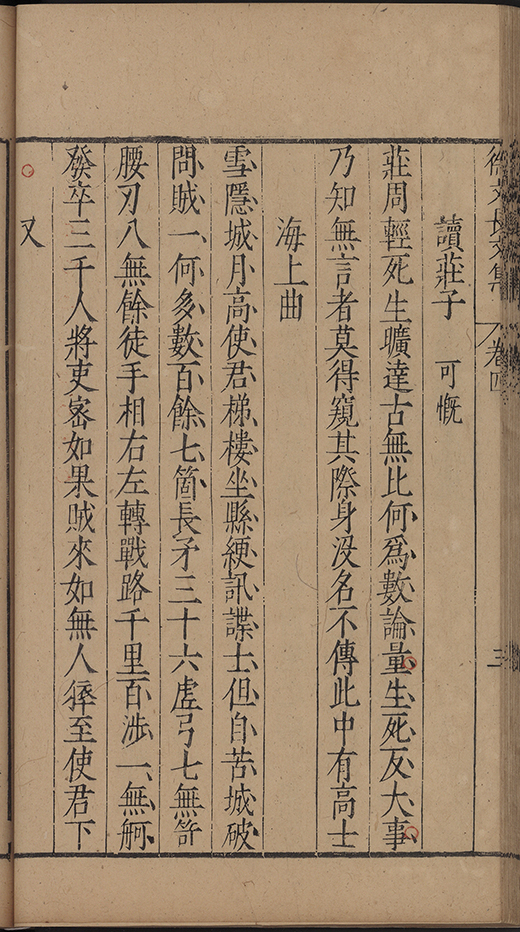 徐文長文集　卷四　三
讀莊子　可慨
莊周輕死生曠達古無比何爲數論量生死反大事
乃知無言者莫得窺其際身沒名不傳此中有高士
海上曲
雪隱城月高使君梯樓坐縣綆訊諜士但自苦城破
問賊一何多數百餘七箇長矛三十六虛弓七無笴
腰刃八無餘徒手相右左轉戰路千里百涉一無舸
發卒三千人將吏密如果賊來如無人猝至使君下
又